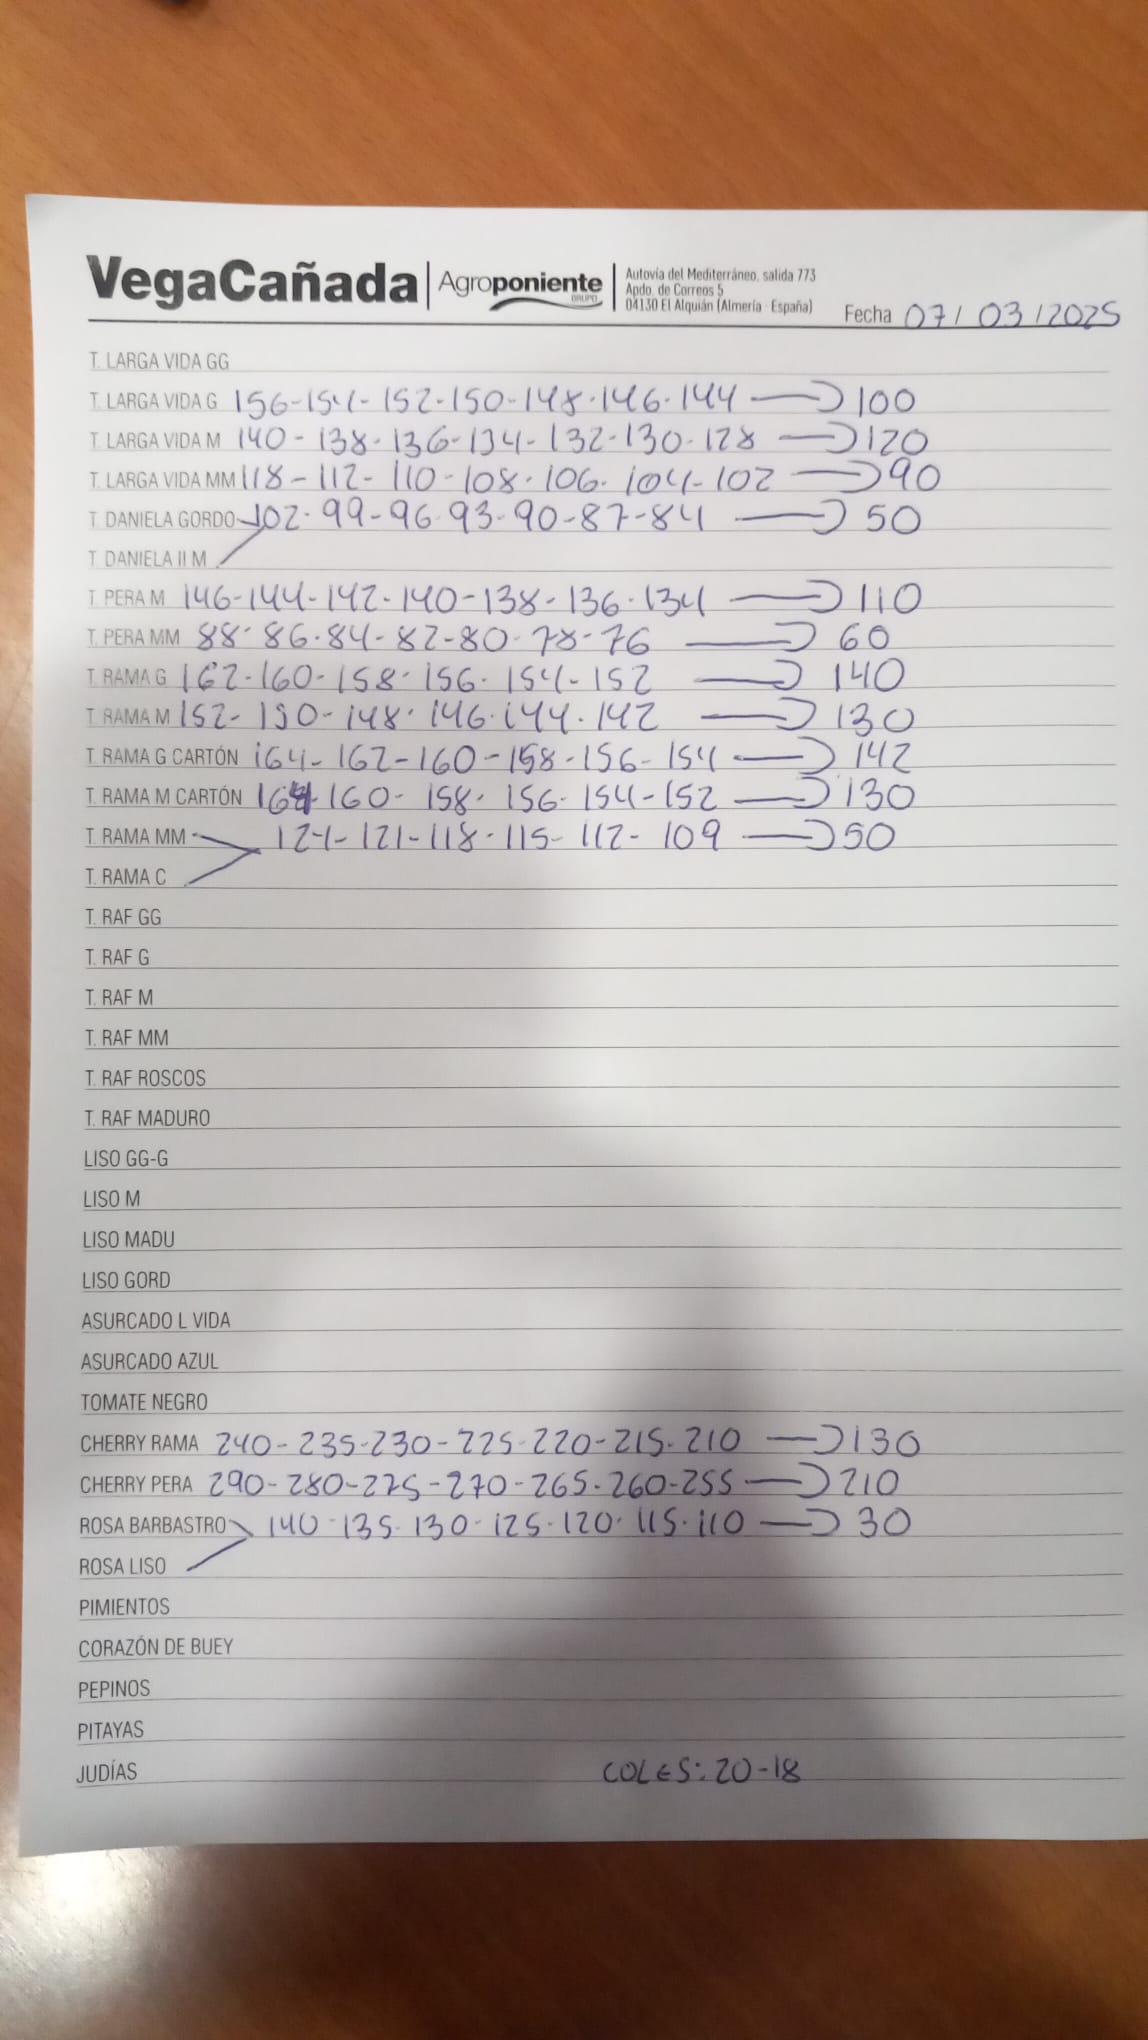 VegaCañada Agroponiente GRUPO
Autovía del Mediterráneo, salida 773
Apdo. de Correos 5
04130 El Alquián (Almería - España)
Fecha 07/03/2025
T. LARGA VIDA GG
T. LARGA VIDA G 156-154-152-150-148-146-144 → 100
T. LARGA VIDA M 140-138-136-134-132-130-128 → 120
T. LARGA VIDA MM 118-112-110-108-106-104-102 → 90
T. DANIELA GORDO 102-99-96-93-90-87-84 → 50
T. DANIELA II M
T. PERA M 146-144-142-140-138-136-134 → 110
T. PERA MM 88-86-84-82-80-78-76 → 60
T. RAMA G 162-160-158-156-154-152 → 140
T. RAMA M 152-150-148-146-144-142 → 130
T. RAMA G CARTÓN 164-162-160-158-156-154 → 142
T. RAMA M CARTÓN 160-158-156-154-152 → 130
T. RAMA MM 124-121-118-115-112-109 → 50
T. RAMA C
T. RAF GG
T. RAF G
T. RAF M
T. RAF MM
T. RAF ROSCOS
T. RAF MADURO
LISO GG-G
LISO M
LISO MADU
LISO GORD
ASURCADO L VIDA
ASURCADO AZUL
TOMATE NEGRO
CHERRY RAMA 240-235-230-225-220-215-210 → 130
CHERRY PERA 290-280-275-270-265-260-255 → 210
ROSA BARBASTRO 140-135-130-125-120-115-110 → 30
ROSA LISO
PIMIENTOS
CORAZÓN DE BUEY
PEPINOS
PITAYAS
JUDÍAS COLES: 20-18